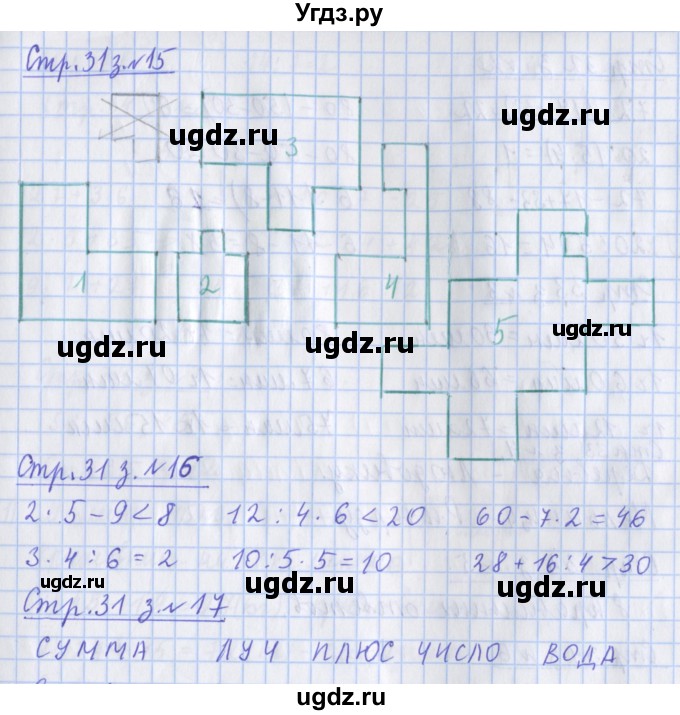 Угдз.ру
Стр. 31 з. №15
ugdz.ru ugdz.ru
3
1 2 4
5 ugdz.ru
ugdz.ru ugdz.ru
Стр. 31 з. №16
ugdz.ru ugdz.ru
2 · 5 - 9 < 8 12 : 4 · 6 < 20 60 - 7 · 2 = 46
3 · 4 : 6 = 2 10 : 5 · 5 = 10 28 + 16 : 4 > 30
ugdz.ru ugdz.ru ugdz.ru
Стр. 31 з. №17
СУММА ЛУЧ ПЛЮС ЧИСЛО ВОДА
ugdz.ru